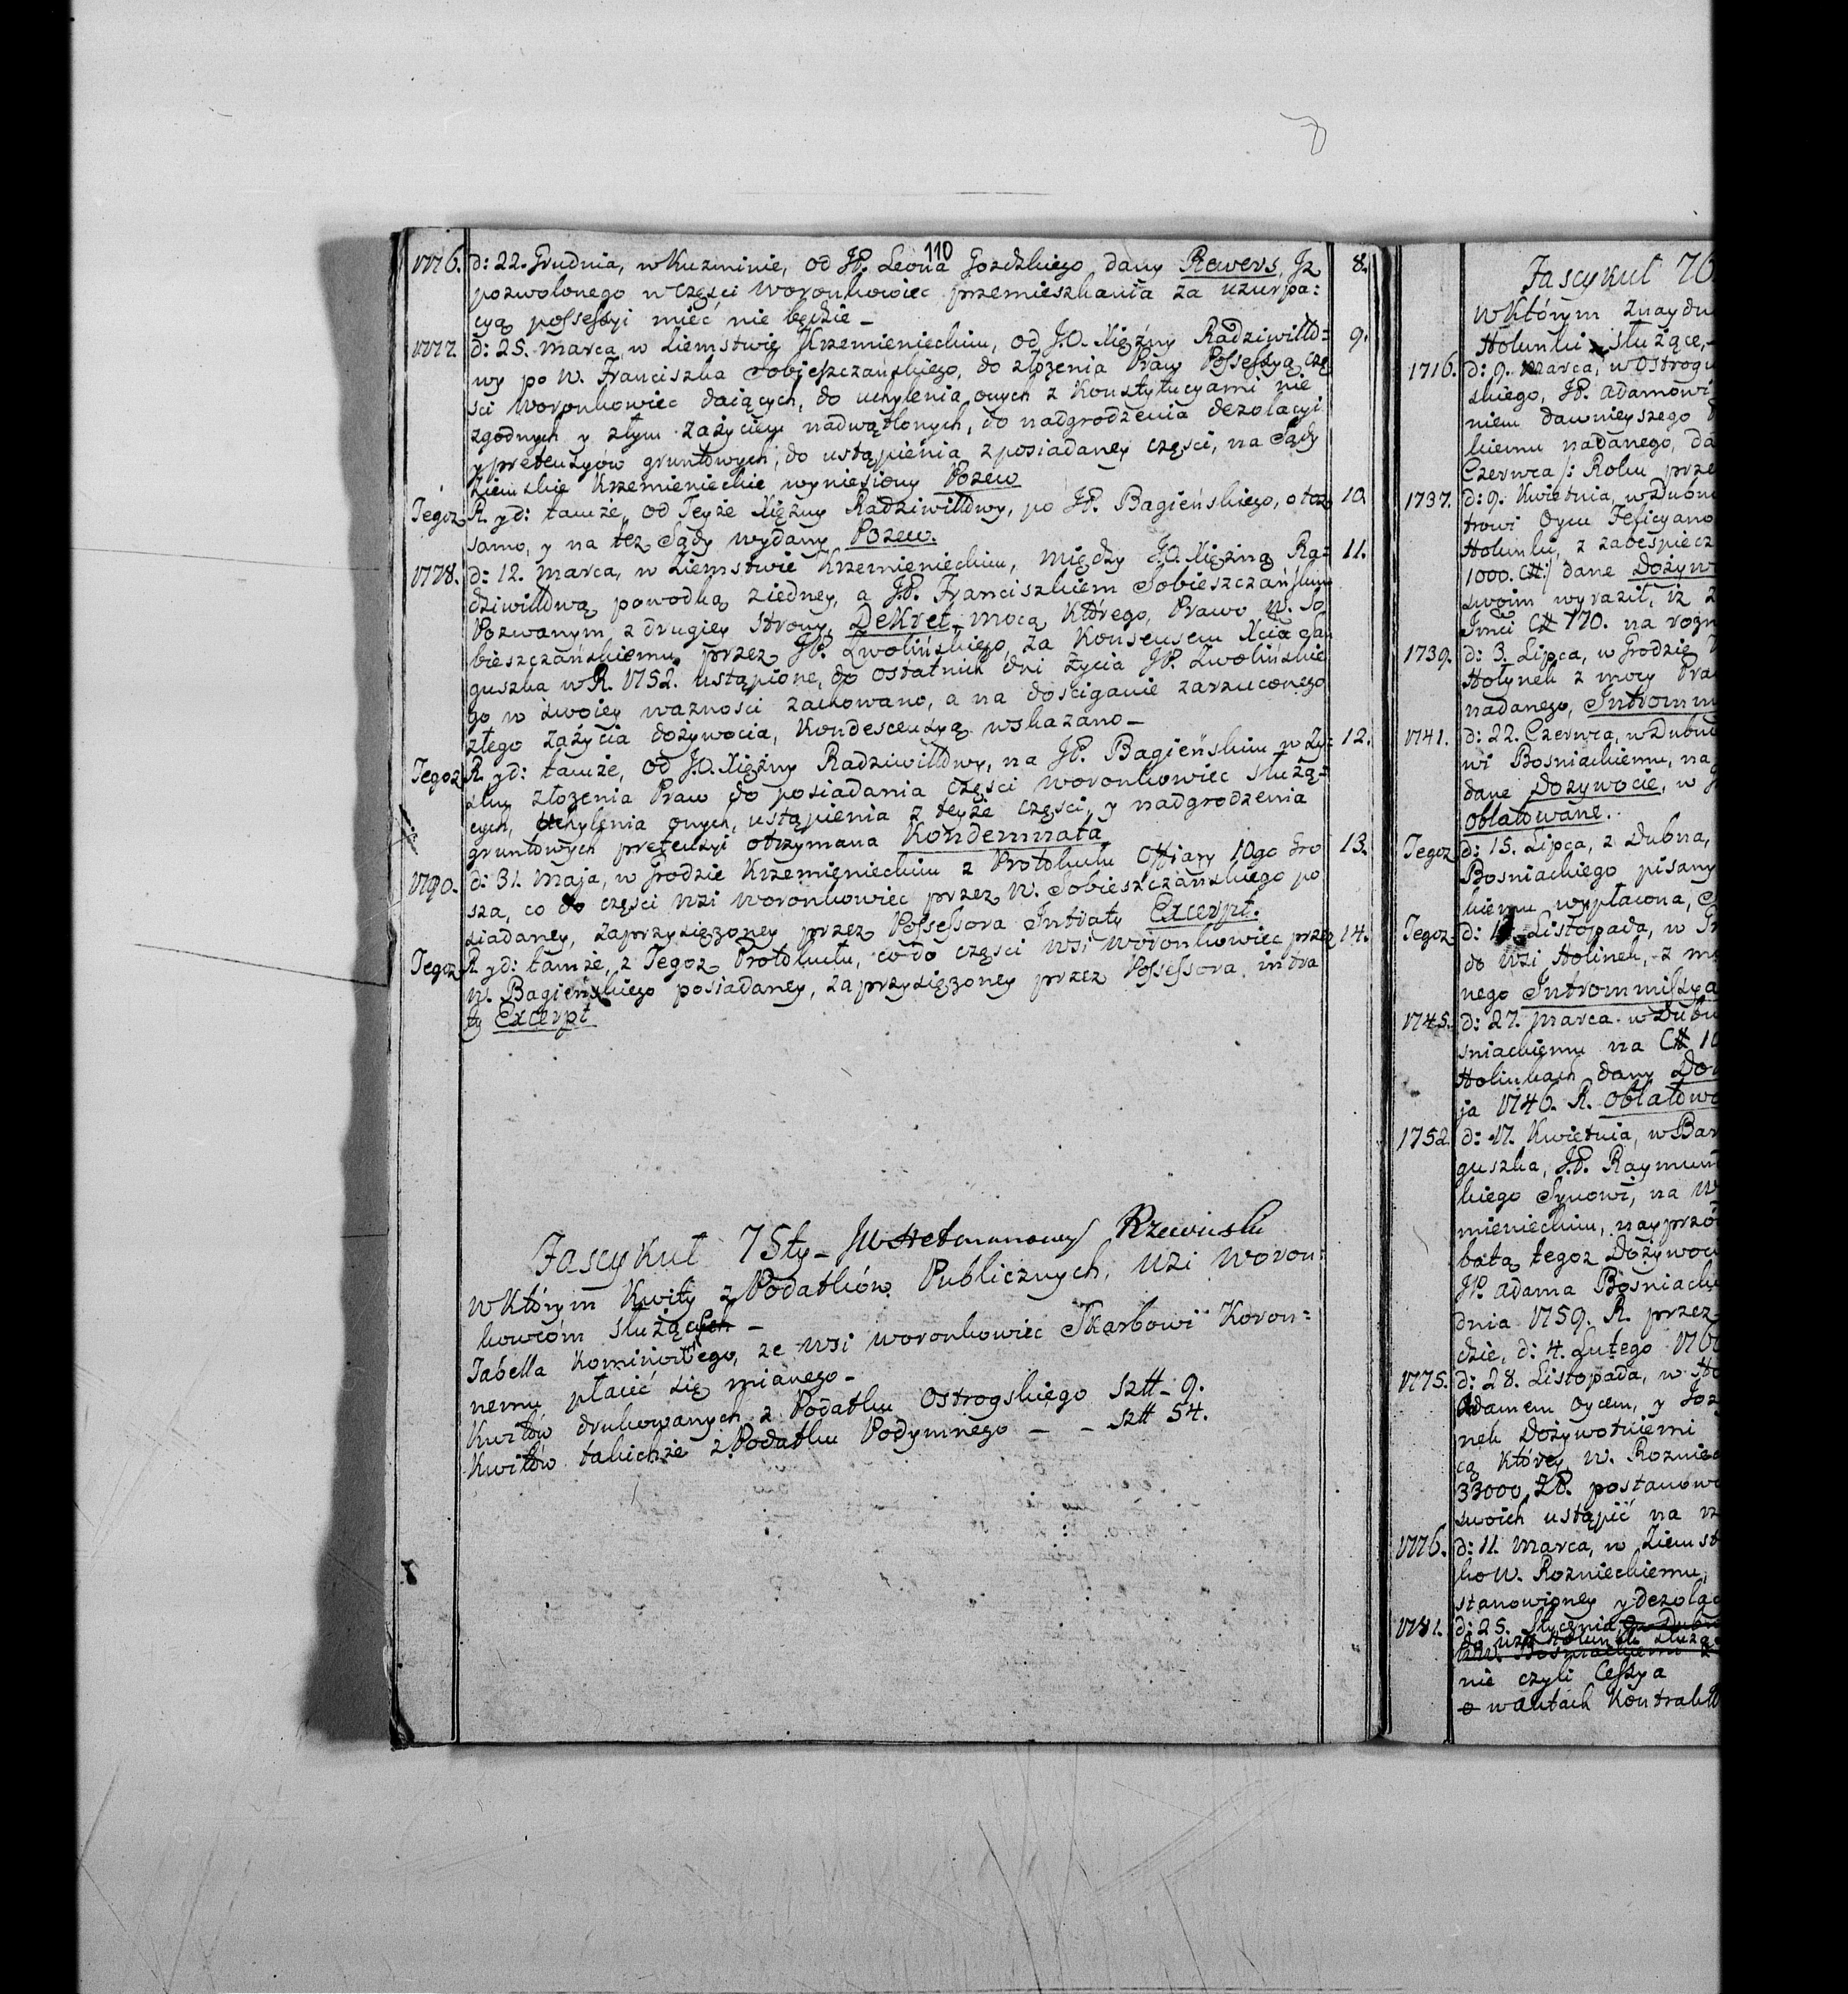 110
1776. d: 22. Grudnia, w Kuzminie, od JP. Leona Gozdzkiego dany Rewers, Iż 8.
pozwolonego w części Woronkowiec przemieszkania za uzurpa:
cyą possessyi mieć nie będzie _
1777. d: 25. Marca, w Ziemstwie Krzemienieckim, od J.O. Xiężny Radziwiłło= 9.
wy po W. Franciszka Sobieszczańskiego, do złożenia Praw Possessyą czę
ści Woronkowiec daiących, do uchylenia onych z Konstytucyami nie
zgodnych y złym zażyciem nadwątlonych, do nadgrodzenia dezolacyi
y pretensyów gruntowych, do ustąpienia z posiadaney części, na Sądy
Ziemskie Krzemienieckie wyniesiony Pozew
Tegoz R. y d: tamże, od Teyże Xiężny Radziwiłłowy, po JP. Bagieńskiego, o toz 10.
samo, y na tez Sądy wydany Pozew.
1778. d: 12. Marca, w Ziemstwie Krzemienieckim, między J.O. Xiężną Ra= 11.
dziwiłłową powodką z iedney, a JP. Franciszkiem Sobieszczańskim
Pozwanym z drugiey strony, Dekret _ mocą którego, Prawo W. So
bieszczańskiemu przez JP. Zwolińskiego, za Konsensem Xcia
guszka w R. 1752. ustąpione, do ostatnich dni życia JP. Zwolińskie
go w swoiey wazności zachowano, a na dościganie zarzuconego
złego zażycia dożywocia, Kondescensyą wskazano _
Tegoz R. y d: tamże, od J.O. Xiężny Radziwiłłowy, na JP. Bagieńskim w Zy= 12.
sku złożenia Praw do posiadania części Woronkowiec służą=
cych, uchylenia onych, ustąpienia z teyże części, y nadgrodzenia
gruntowych pretensyi otrzymana Kondemnata
1790. d: 31. Maja, w Grodzie Krzemienieckim z Protokułu Offiary 10go Gro 13.
sza, co do części Wsi Woronkowiec przez W. Sobieszczańskiego po
siadaney, zaprzysiężoney przez Possessora Intraty Excerpt.
Tegoz R. y d: tamże, z Tegoz Protokułu, co do części Wsi Woronkowiec przez 14.
W. Bagieńskiego posiadaney, zaprzysiężoney przez Possessora, intra
ty Excerpt
Fascykuł 75ty _ JW Hetmanowey Rzewuski
w Którym Kwity z Podatków Publicznych, Wsi Woron:
kowcóm służących _
Tabella Kominowego, ze Wsi Woronkowiec Skarbowi Koron:
nemu płacić się mianego _
Kwitów drukowanych z Podatku Ostrogskiego Sztt _ 9.
Kwitów takichże z Podatku Podymnego _ _ Sztt 54.
Fascykuł 76
w Którym znaydu
Holunki służące,
1716. d: 9. Marca, w Ostrogu
skiego, JP. Adamowi
niem dawnieyszego
kiemu nadanego, da
Czerwca /: Roku prze
1737. d: 9. Kwietnia, w Dubn
trowi Oycu Felicyano
Holunki, z zabespiecz
1000. Ctt: / dane Dożyw
swoim wyraził, iz z
Imci Ctt 170. na rozn
1739. d: 3. Lipca, w Grodzie
Hołynek z mocy Pra
nadanego, Intromm
1741. d: 22. Czerwca, w Dubn
wi Bosniackiemu, na
dane Dozywocie, w
oblatowane.
Tegoz d: 15. Lipca, z Dubna,
Bosniackiego pisany
kiemu wypłacona,
Tegoz d: Listopada, w
do Wsi Holinek, z m
nego Intrommissya
1745. d: 27. Marca w Dubn
sniackiemu na Ctt 10
Holinkach dany Do
ja 1746. R. oblatowa
1752. d: 17. Kwietnia, w Bar
guszka, J.P. Raymun
kiego Synowi, na W
mienieckim, nayprzó
batą tegoz Dożywoc
JP. Adama Bosniack
dnia 1759. R. przez
dzie, d: 4. Lutego 176
1775. d: 28. Listopada, w
Adamem Oycem, y Joz
nek Dożywotniemi
cą którey, W. Roznie
33000 ZP. postanow
swoich ustąpić na
1776. d: 11. Marca, w Ziemst
ko W. Roznieckiemu,
stanowioney y dezolac
1781. d: 25. Stycznia,
nie czyli Cessya
w aktach Kontrakt